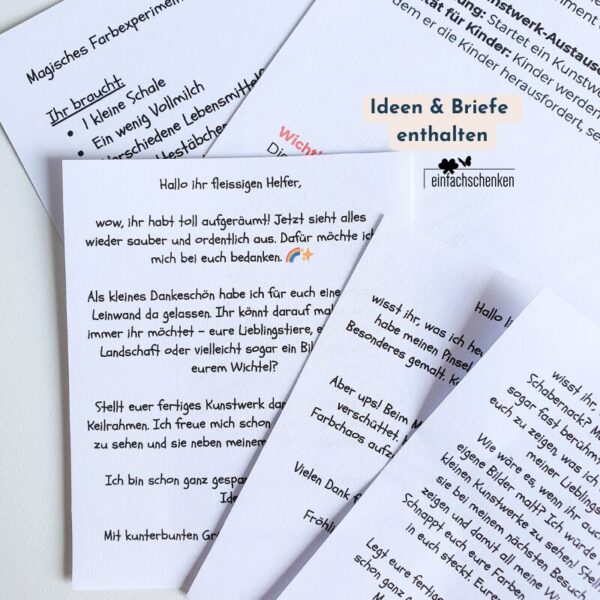 Magisches Farbexperiment
Ihr braucht:
1 kleine Schale
Ein wenig Vollmilch
Verschiedene Lebensmittel
Ideen & Briefe
enthalten
einfachschenken
Startet ein Kunstwerk
ität für Kinder: Kinder werden
dem er die Kinder herausfordert, se
Hallo ihr fleissigen Helfer,
wow, ihr habt toll aufgeräumt! Jetzt sieht alles
wieder sauber und ordentlich aus. Dafür möchte ich
mich bei euch bedanken. 🌈✨
Als kleines Dankeschön habe ich für euch eine
Leinwand da gelassen. Ihr könnt darauf mal
immer ihr möchtet – eure Lieblingstiere, e
Landschaft oder vielleicht sogar ein Bil
eurem Wichtel?
Stellt euer fertiges Kunstwerk da
Keilrahmen. Ich freue mich schon
zu sehen und sie neben meinem
Ich bin schon ganz gespa
Ide
Mit kunterbunten Gr
Hallo li
wisst ihr, was ich heu
habe meinen Pinsel
Besonderes gemalt. K
Aber ups! Beim M
verschüttet.
Farbchaos aufz
Vielen Dank f
Fröhli
wisst ihr
Schabernack? M
sogar fast berühm
euch zu zeigen, was ich
meiner Lieblings
Wie wäre es, wenn ihr auc
eigene Bilder malt? Ich würde
kleinen Kunstwerke zu sehen! Stell
sie bei meinem nächsten Besuch
zeigen und damit all meine W
Schnappt euch eure Farben
in euch steckt. Eure
Legt eure fertige
schon ganz g